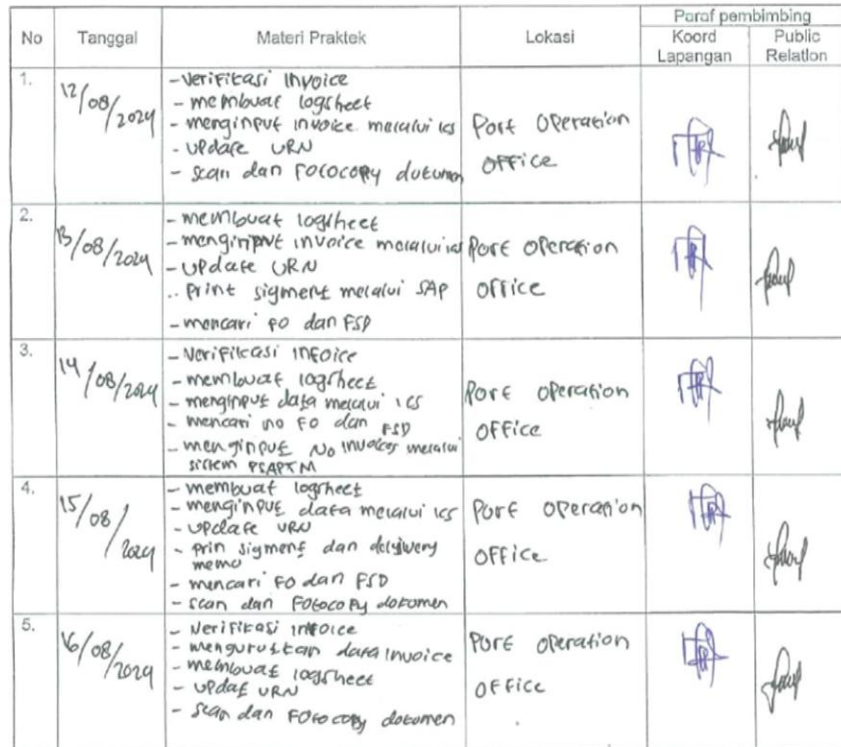 No Tanggal Materi Praktek Lokasi Paraf pembimbing
Koord Lapangan Public Relation
1. 12/08/2024
- Verifikasi Invoice
- membuat logsheet
- menginput invoice melalui ics
- update URN
- scan dan Fotocopy dokumen
Port Operation
Office
2. 13/08/2024
- membuat logsheet
- menginput invoice melalui ics
- update URN
- Print sigment melalui SAP
- mencari FO dan FSD
Port Operation
Office
3. 14/08/2024
- Verifikasi infoice
- membuat logsheet
- menginput data melalui ics
- mencari no FO dan FSD
- menginput No invoices melalui
sistem
Port Operation
Office
4. 15/08/2024
- membuat logsheet
- menginput data melalui ics
- update URN
- prin sigment dan
memo
- mencari FO dan FSD
- scan dan Fotocopy dokumen
Port Operation
Office
5. 16/08/2024
- Verifikasi infoice
- data invoice
- membuat logsheet
- updat URN
- scan dan Fotocopy dokumen
Port Operation
Office